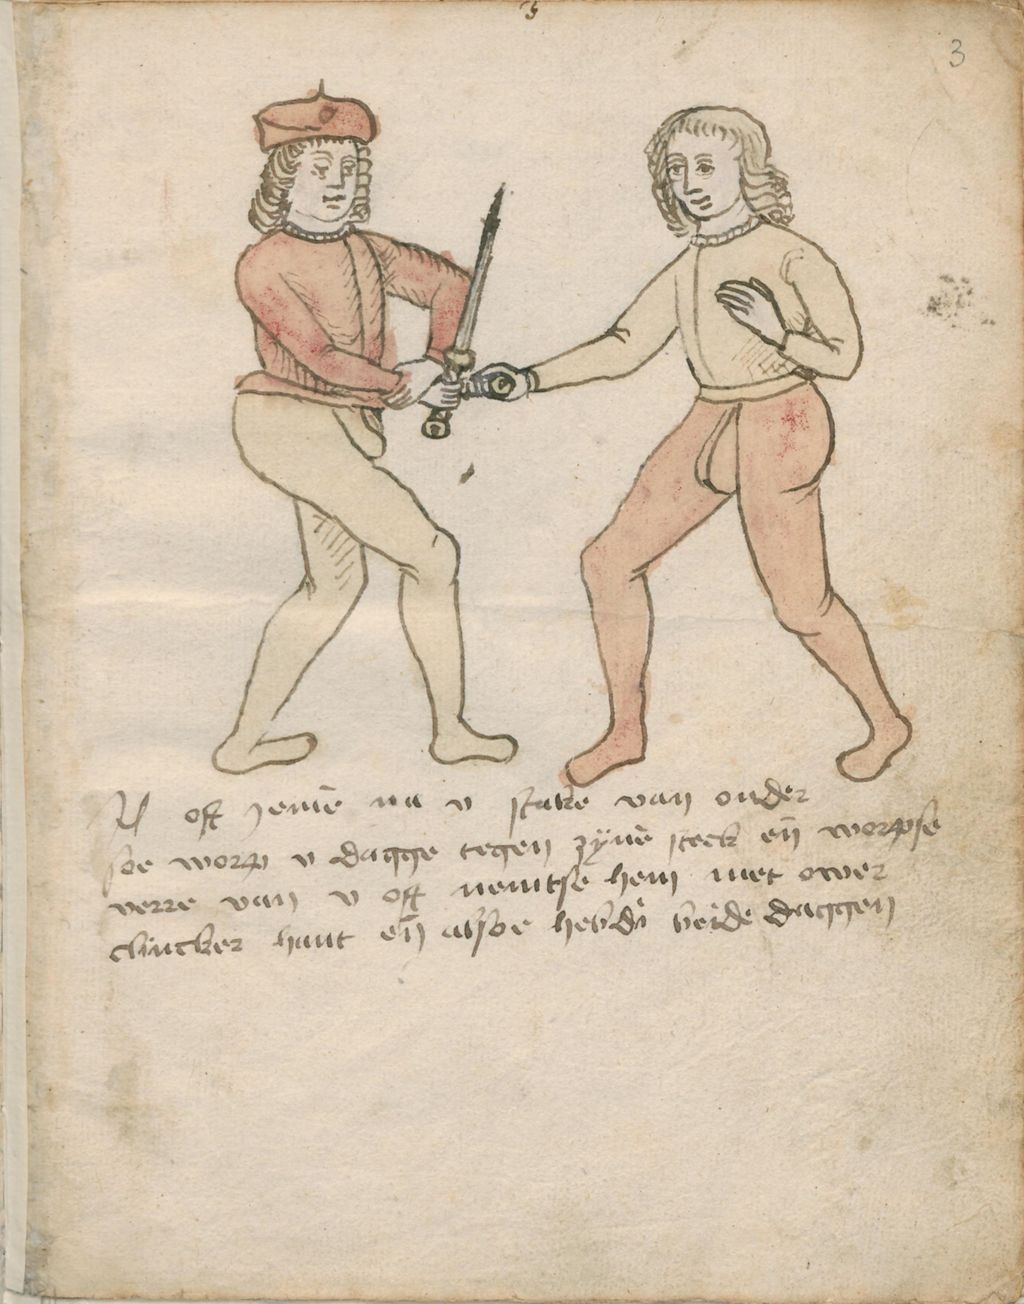 3
oft yemē na v stake van onder
soe worp v dagge tegen zynē steek eñ worpse
verre van v oft nemtse hem met ower
clincker hant eñ alsoe hebdi beide daggen